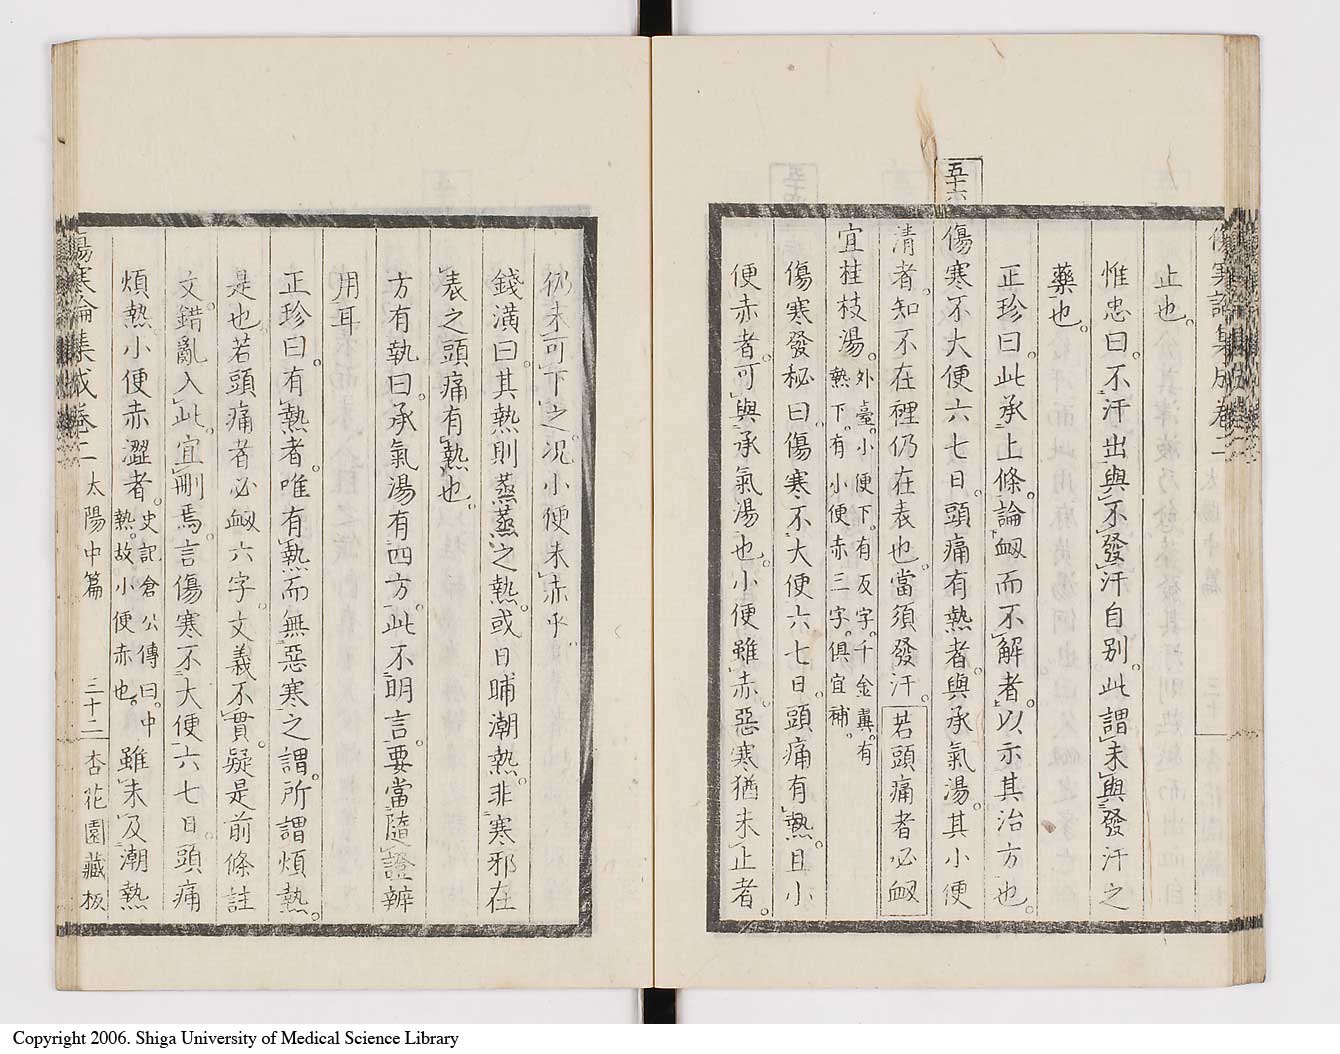 止也。
惟忠曰。不汗出與不發汗自別。此謂未與發汗之
藥也。
正珍曰。此承上條。論衂而不解者。以示其治方也。
五十六
傷寒不大便六七日。頭痛有熱者。與承氣湯。其小便
清者。知不在裡仍在表也。當須發汗。若頭痛者必衂
宜桂枝湯。外臺。小便下。有反字。千金翼。有熱下。有小便赤三字。俱宜補。
傷寒發秘曰。傷寒不大便六七日。頭痛有熱。且小
便赤者。可與承氣湯也。小便雖赤。惡寒猶未止者。
仍未可下之。況小便未赤乎。
錢潢曰。其熱則蒸蒸之熱。或日晡潮熱。非寒邪在
表之頭痛有熱也。
方有執曰。承氣湯有四方。此不明言。要當隨證辨
用耳
正珍曰。有熱者。唯有熱而無惡寒之謂。所謂煩熱。
是也。若頭痛者必衂六字。文義不貫。疑是前條註
文。錯亂入此。宜刪焉。言傷寒不大便六七日。頭痛
煩熱小便赤澀者。史記倉公傳曰。中熱。故小便赤也。雖未及潮熱
傷寒論集成卷二 太陽中篇 三十二 杏花園藏板